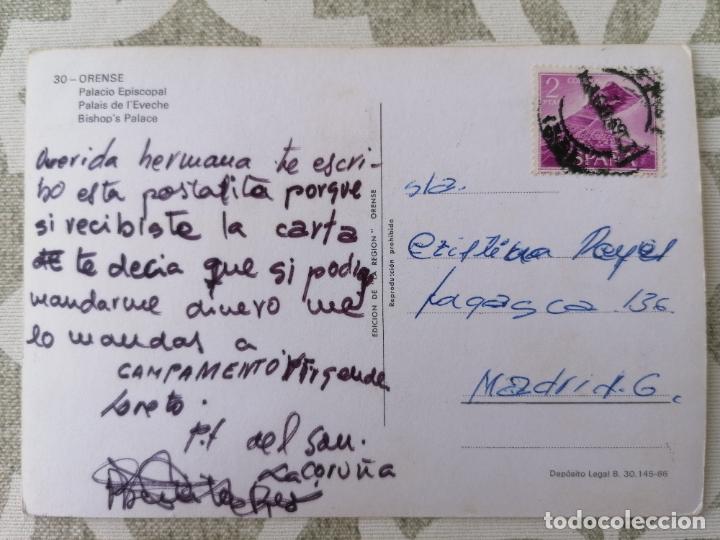 30 – ORENSE
Palacio Episcopal
Palais de l'Eveche
Bishop's Palace
Querida hermana te escri-
bo esta postalita porque
si recibiste la carta
te decia que si podia
mandarme dinero me
lo mandas a
CAMPAMENTO Virgen de
Loreto.
P.t del San.
La CORUÑA
EDICION DE "LA REGION" ORENSE
Reproducción prohibida
2
PTAS
CORREOS
ESPAÑA
Srta.
Cristina Reyes
Lagasca 136
Madrid-6.
Depósito Legal B. 30.145-66
todocoleccion